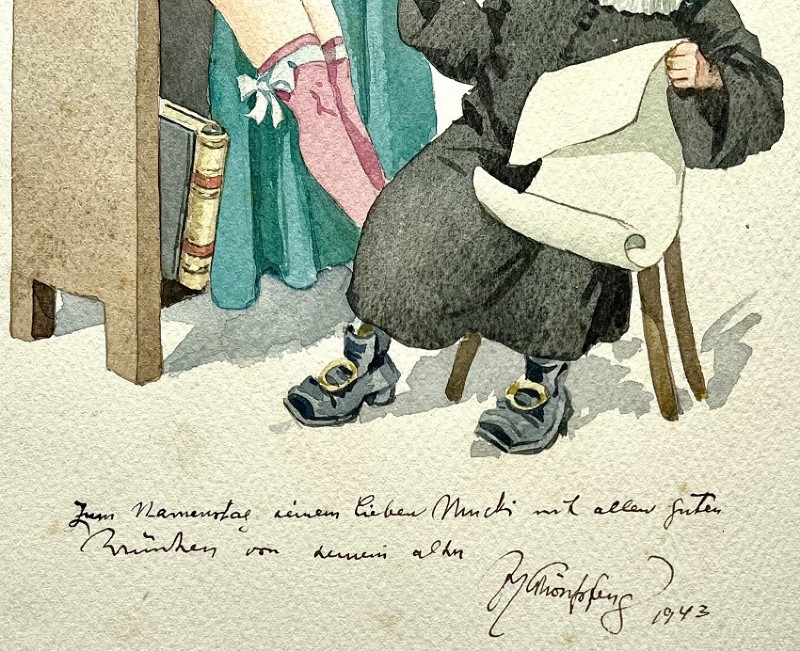 Zum Namenstag seinem lieben Mucki mit allen guten
Wünschen von seinem alten
1943